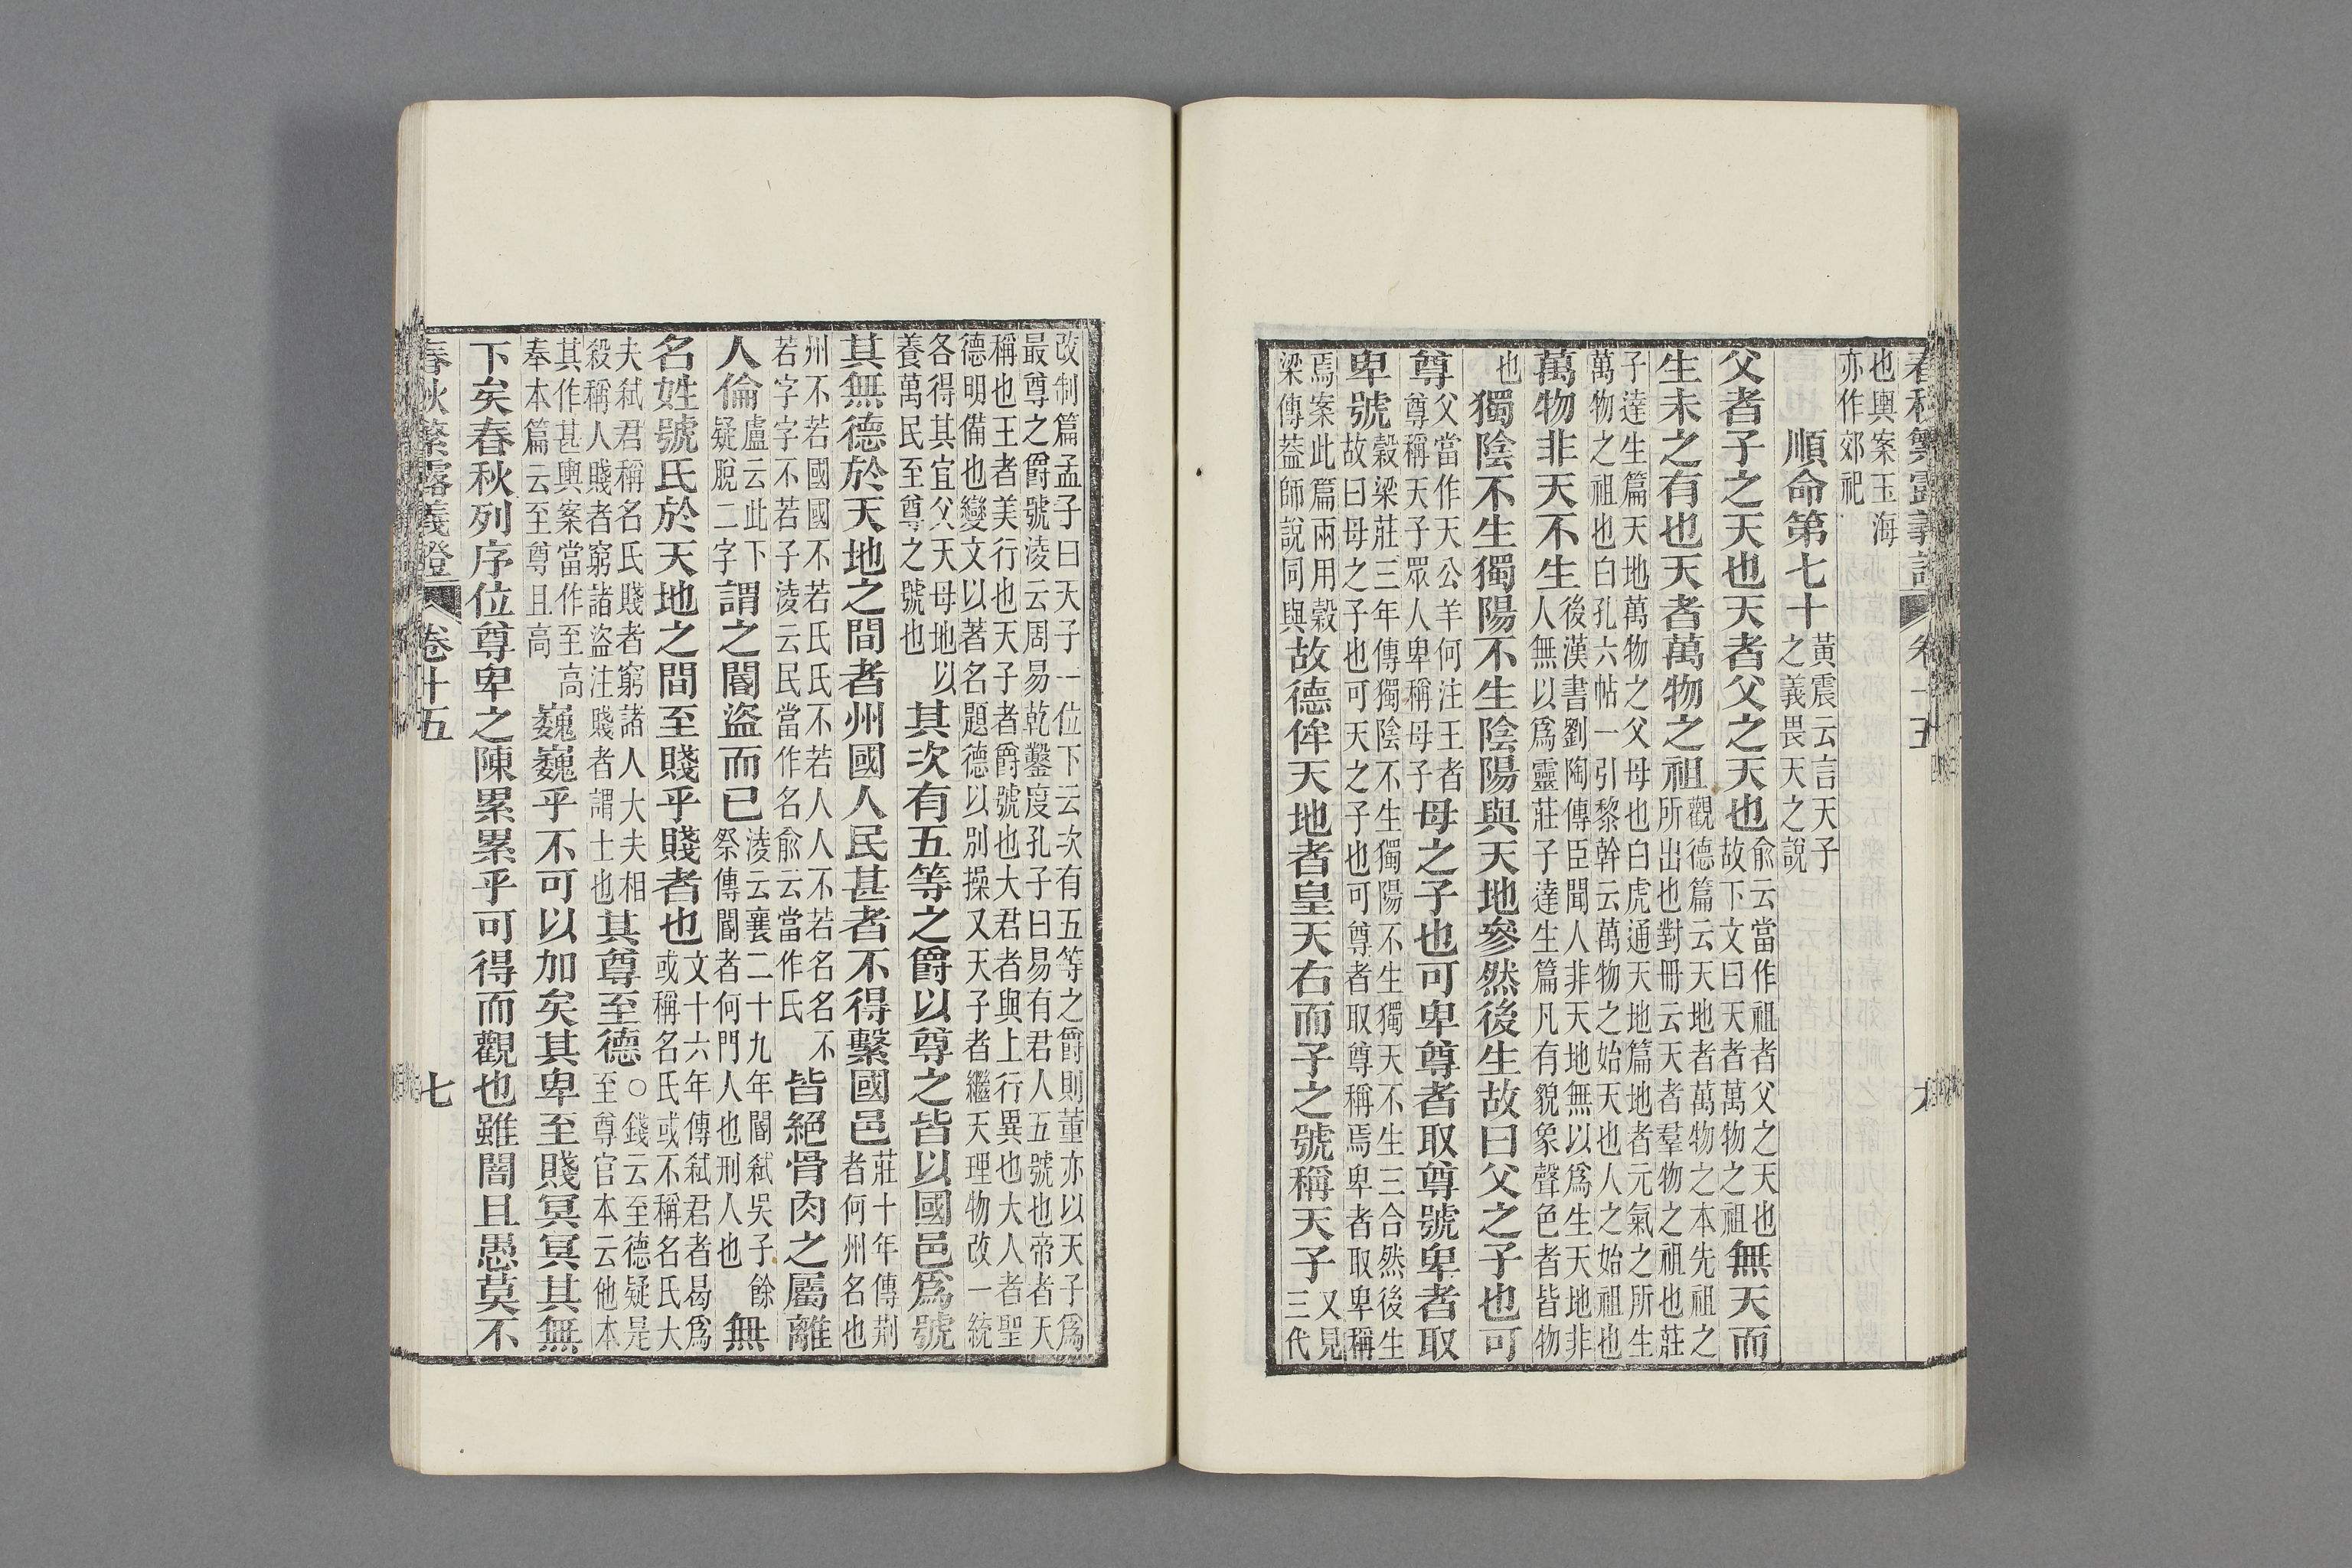 春秋繁露義證 卷十五
也輿案玉海
亦作郊祀
順命第七十黃震云言天子之義畏天之說
父者子之天也天者父之天也俞云當作祖者父之天也故下文曰天者萬物之祖無天而
生未之有也天者萬物之祖觀德篇云天地者萬物之本先祖之所出也對冊云天者羣物之祖也莊
子達生篇天地萬物之父母也白虎通天地篇地者元氣之所生
萬物之祖也白孔六帖一引黎幹云萬物之始天也人之始祖也
萬物非天不生後漢書劉陶傳臣聞人非天地無以爲生天地非人無以爲靈莊子達生篇凡有貌象聲色者皆物
也獨陰不生獨陽不生陰陽與天地參然後生故曰父之子也可
尊父當作天公羊何注王者尊稱天子眾人卑稱母子母之子也可卑尊者取尊號卑者取
卑號穀梁莊三年傳獨陰不生獨陽不生獨天不生三合然後生故曰母之子也可天之子也可尊者取尊稱焉卑者取卑稱
焉案此篇兩用穀梁傳葢師說同與故德侔天地者皇天右而子之號稱天子又見三代
改制篇孟子曰天子一位下云次有五等之爵則董亦以天子爲
最尊之爵號淩云周易乾鑿度孔子曰易有君人五號也帝者天
稱也王者美行也天子者爵號也大君者與上行異也大人者聖
德明備也變文以著名題德以別操又天子者繼天理物改一統
各得其宜父天母地以養萬民至尊之號也其次有五等之爵以尊之皆以國邑爲號
其無德於天地之間者州國人民甚者不得繫國邑莊十年傳荆者何州名也
州不若國國不若氏氏不若人人不若名名不若字字不若子淩云民當作名俞云當作氏皆絕骨肉之屬離
人倫盧云此下疑脫二字謂之閽盜而已淩云襄二十九年閽弒吳子餘祭傳閽者何門人也刑人也無
名姓號氏於天地之間至賤乎賤者也文十六年傳弒君者曷爲或稱名氏或不稱名氏大
夫弒君稱名氏賤者窮諸人大夫相殺稱人賤者窮諸盜注賤者謂士也其尊至德○錢云至德疑是至尊官本云他本
其作甚輿案當作至高奉本篇云至尊且高巍巍乎不可以加矣其卑至賤冥冥其無
下矣春秋列序位尊卑之陳累累乎可得而觀也雖闇且愚莫不
春秋繁露義證 卷十五 七